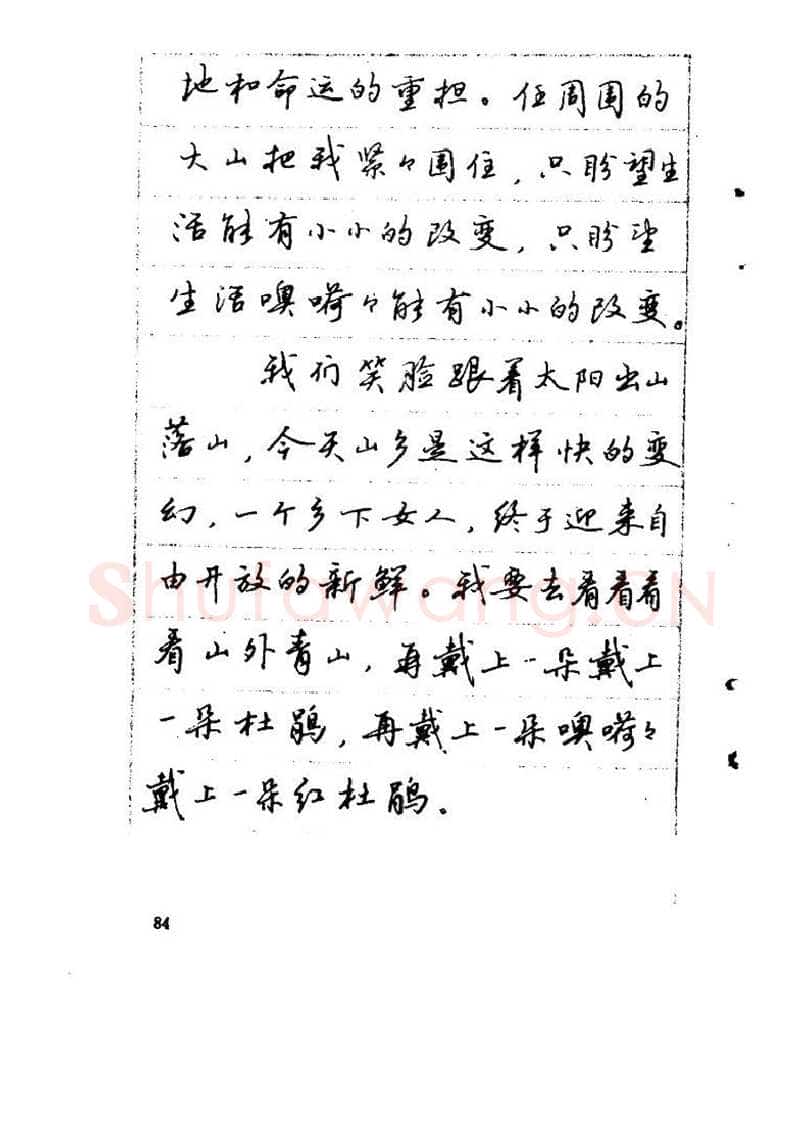 地和命运的重担。任周围的
大山把我紧々围住，只盼望生
活能有小小的改变，只盼望
生活噢嗬々能有小小的改变。
我们笑脸跟着太阳出山
落山，今天山乡是这样快的变
幻，一个乡下女人，终于迎来自
由开放的新鲜。我要去看看看
看山外青山，再戴上一朵戴上
一朵杜鹃，再戴上一朵噢嗬々
戴上一朵红杜鹃。
84
Shufawang.CN